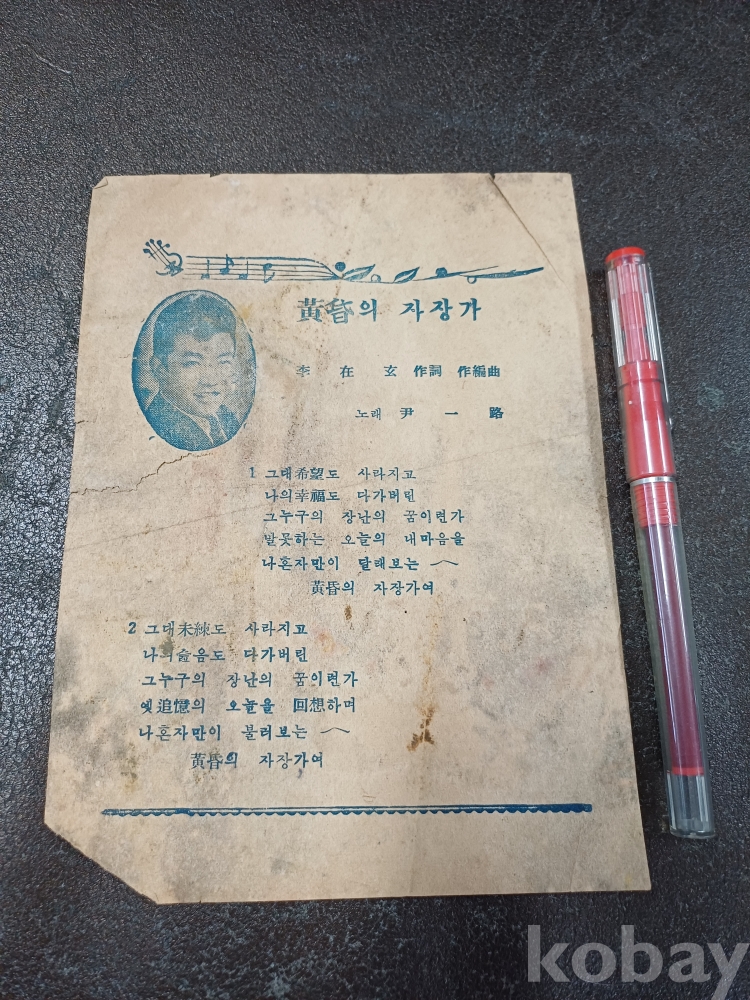 黃昏의 자장가
李在玄 作詞 作編曲
노래 尹一路
1 그대希望도 사라지고
나의幸福도 다가버린
그누구의 장난의 꿈이련가
말못하는 오늘의 내마음을
나혼자만이 달래보는
黃昏의 자장가여
2 그대未練도 사라지고
나의슬음도 다가버린
그누구의 장난의 꿈이련가
옛追憶의 오늘을 回想하며
나혼자만이 불러보는
黃昏의 자장가여
kobay